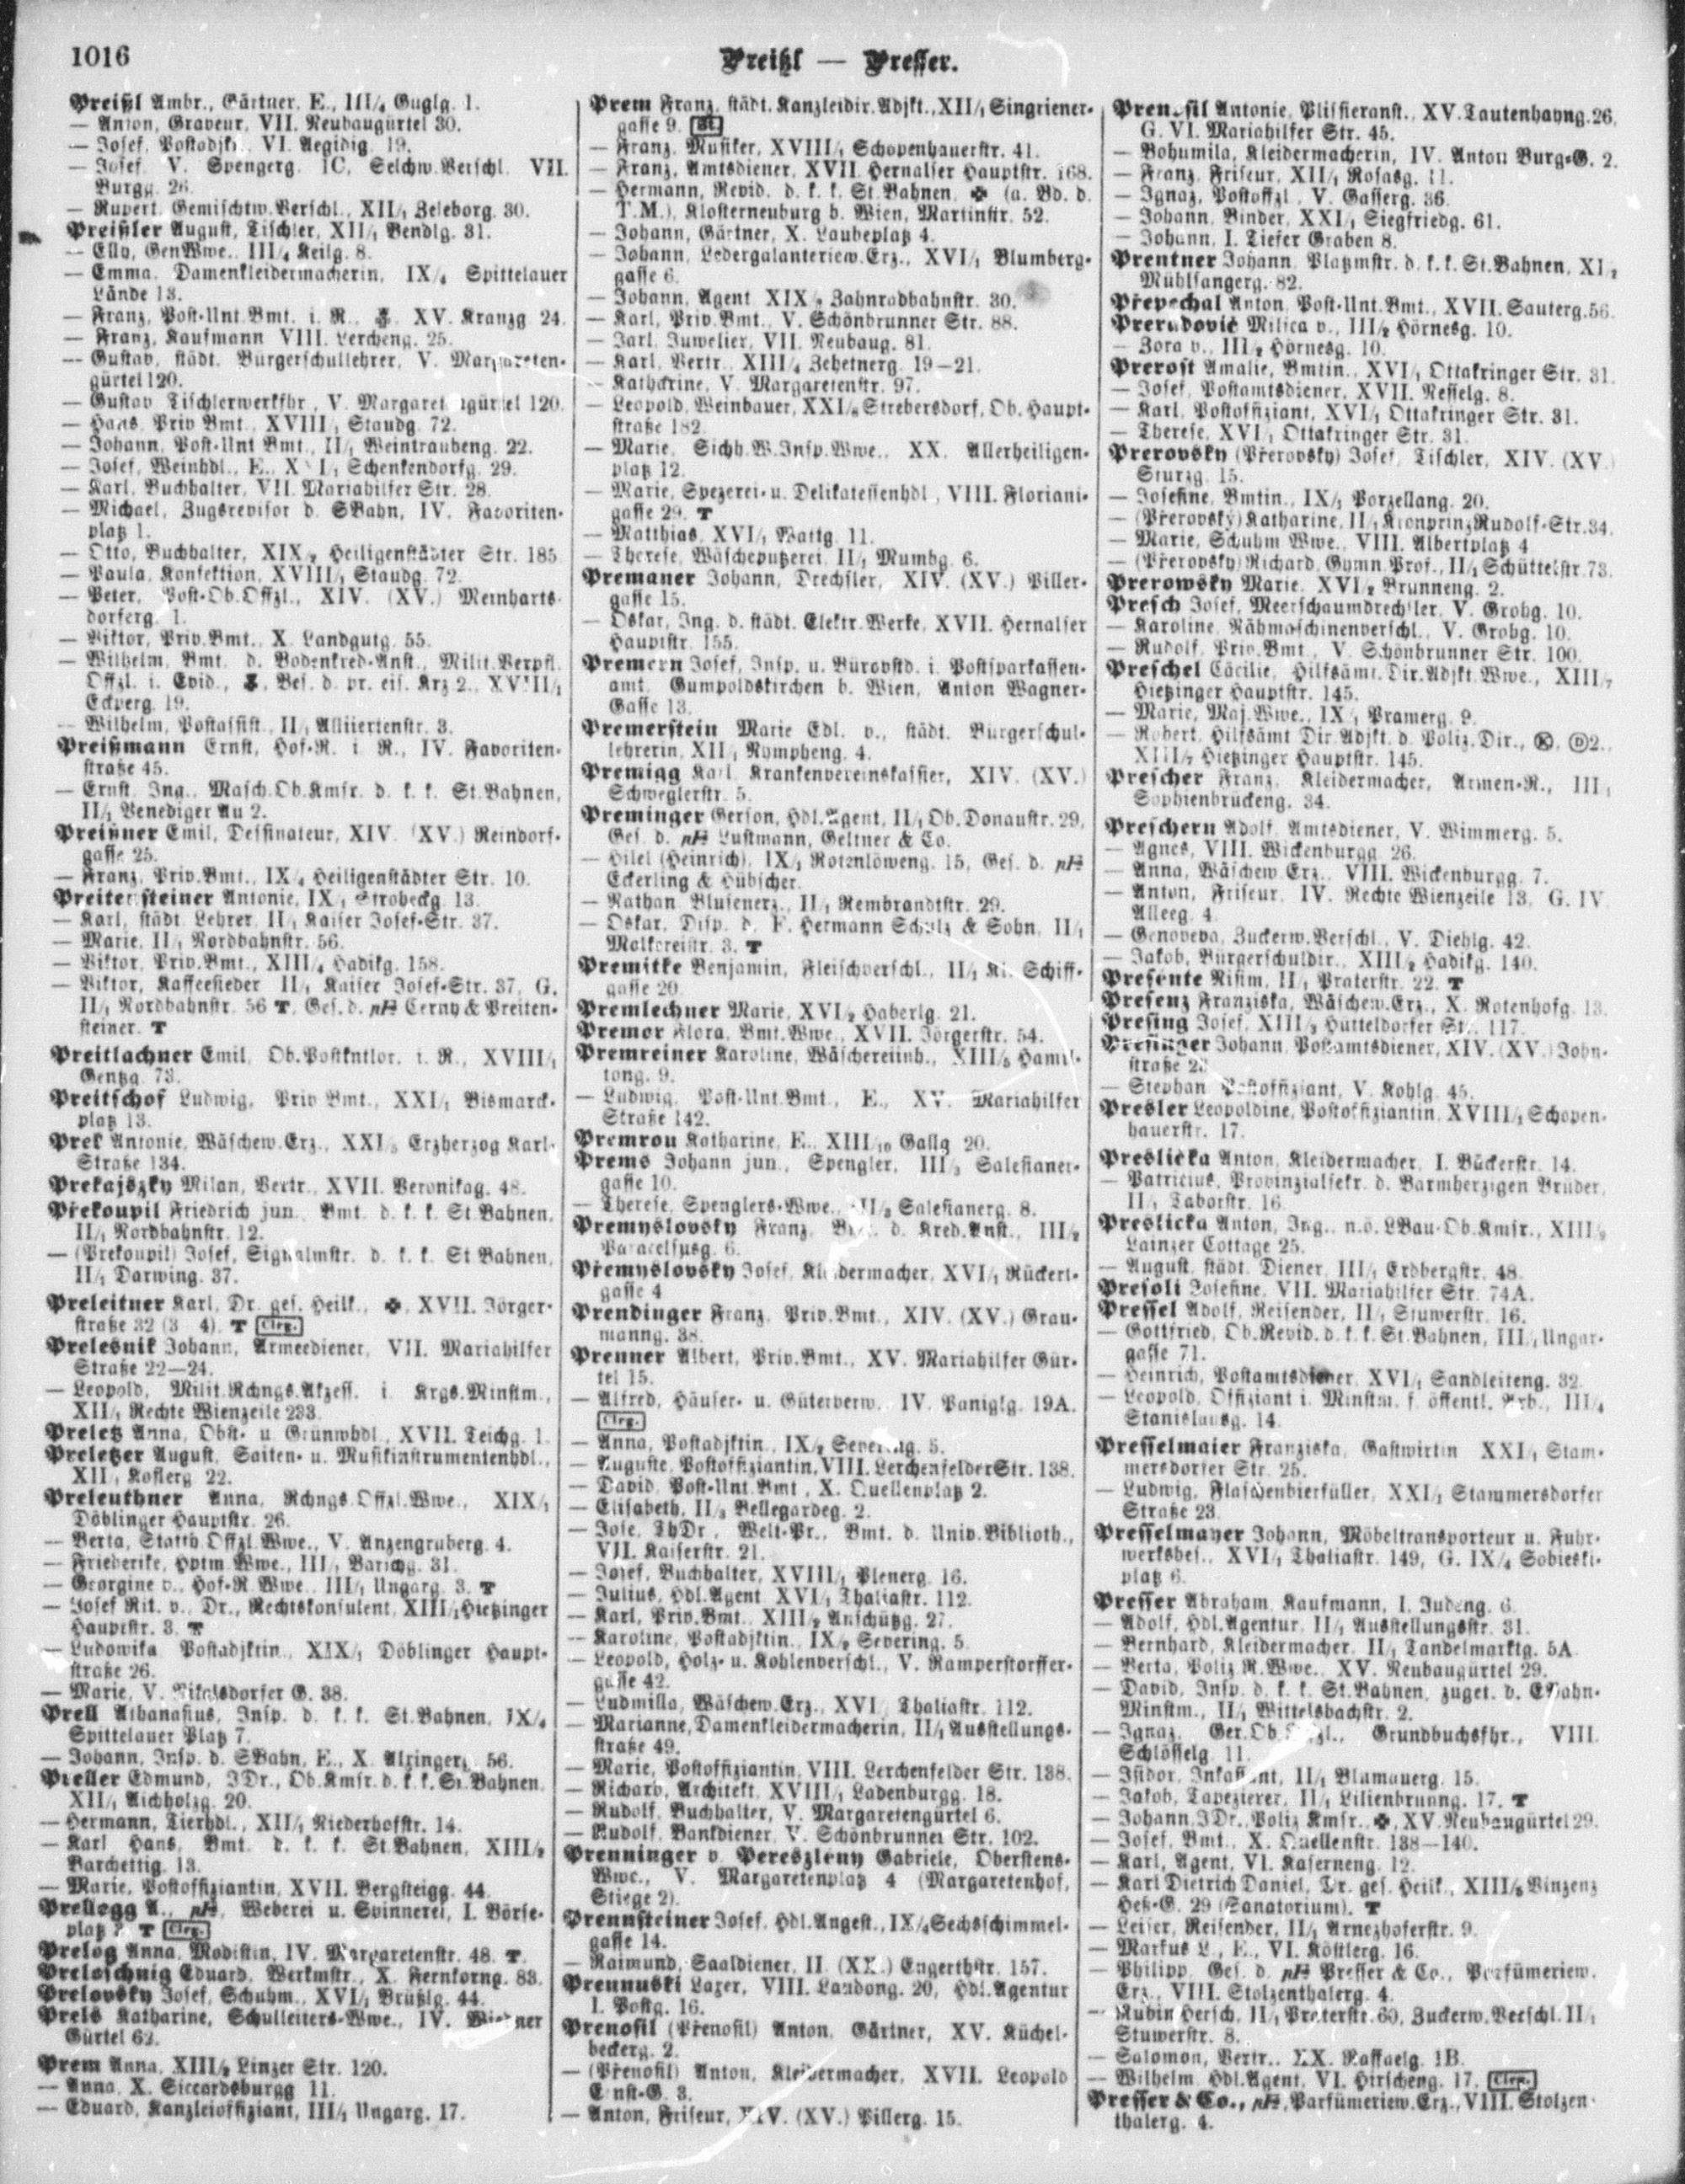 1016
Preißl — Presser.
Preißl Ambr., Gärtner, E., III/4 Guglg. 1.
— Anton, Graveur, VII. Neubaugürtel 30.
— Josef, Postadjkt., VI. Aegidig. 19.
— Josef, V. Spengerg. 1C, Selchw.Verschl. VII.
Burgg. 26.
— Rupert, Gemischtw.Verschl., XII/1 Zeleborg. 30.
Preißler August, Tischler, XII/1 Bendlg. 31.
— Elly, GenWwe., III/4 Keilg. 8.
— Emma, Damenkleidermacherin, IX/4 Spittelauer
Lände 13.
— Franz, Post-Unt.Bmt. i. R., XV. Kranzg. 24.
— Franz, Kaufmann VIII. Lercheng. 25.
— Gustav, städt. Bürgerschullehrer, V. Margareten-
gürtel 120.
— Gustav Tischlerwerkfhr., V. Margaretengürtel 120.
— Hans, Priv.Bmt., XVIII/1 Staudg. 72.
— Johann, Post-Unt.Bmt., II/1 Weintraubeng. 22.
— Josef, Weinhdl., E., Schenkendorfg. 29.
— Karl, Buchhalter, VII. Mariahilfer Str. 28.
— Michael, Zugsrevisor d. SBahn, IV. Favoriten-
platz 1.
— Otto, Buchhalter, XIX/2 Heiligenstädter Str. 185.
— Paula, Konfektion, XVIII/1 Staudg. 72.
— Peter, Post-Ob.Offzl., XIV. (XV.) Meinharts-
dorferg. 1.
— Viktor, Priv.Bmt., X. Landgutg. 55.
— Wilhelm, Bmt. d. Bodenkred-Anst., Milit.Verpfl.
Offzl. i. Evid., Bes. d. pr. eis. Krz 2., XVIII/1
Eckperg. 19.
— Wilhelm, Postassist., II/1 Alliiertenstr. 3.
Preißmann Ernst, Hof-R. i. R., IV. Favoriten-
straße 45.
— Ernst, Ing., Masch.Ob.Kmsr. d. k. k. St.Bahnen,
II/1 Venediger Au 2.
Preißner Emil, Dessinateur, XIV. (XV.) Reindorf-
gasse 25.
— Franz, Priv.Bmt., IX/4 Heiligenstädter Str. 10.
Preitensteiner Antonie, IX/1 Strobeckg. 13.
— Karl, städt. Lehrer, II/1 Kaiser Josef-Str. 37.
— Marie, II/1 Nordbahnstr. 56.
— Viktor, Priv.Bmt., XIII/4 Hadikg. 158.
— Viktor, Kaffeesieder II/1 Kaiser Josef-Str. 37, G.
II/1 Nordbahnstr. 56 T, Ges. d. pH Cerny & Preiten-
steiner. T
Preitlachner Emil, Ob.Postkntlor. i. R., XVIII/1
Gentzg. 73.
Preitschof Ludwig, Priv.Bmt., XXI/1 Bismarck-
platz 13.
Prek Antonie, Wäschew.Erz., XXI/5 Erzherzog Karl-
Straße 134.
Prekajszky Milan, Vertr., XVII. Veronikag. 48.
Překoupil Friedrich jun., Bmt. d. k. k. St.Bahnen,
II/1 Nordbahnstr. 12.
— (Prekoupil) Josef, Signalmstr. d. k. k. St.Bahnen,
II/1 Darwing. 37.
Preleitner Karl, Dr. ges. Heilk., ✠, XVII. Jörger-
straße 32 (3 4). T Clrg.
Prelesnik Johann, Armeediener, VII. Mariahilfer
Straße 22—24.
— Leopold, Milit.Rchngs.Akzess. i. Krgs.Minstm.,
XII/1 Rechte Wienzeile 233.
Preletz Anna, Obst- u. Grünwhdl., XVII. Teichg. 1.
Preletzer August, Saiten- u. Musikinstrumentenhdl.,
XII/1 Koflerg. 22.
Preleuthner Anna, Rchngs.Offzl.Wwe., XIX/1
Döblinger Hauptstr. 26.
— Berta, Statth.Offzl.Wwe., V. Anzengruberg. 4.
— Friederike, Hptm.Wwe., III/1 Barichg. 31.
— Georgine v., Hof-R.Wwe., III/1 Ungarg. 3. T
— Josef Rit. v., Dr., Rechtskonsulent, XIII/1 Hietzinger
Hauptstr. 3. T
— Ludowika Postadjktin., XIX/1 Döblinger Haupt-
straße 26.
— Marie, V. Nikolsdorfer G. 38.
Prell Athanasius, Insp. d. k. k. St.Bahnen, IX/4
Spittelauer Platz 7.
— Johann, Insp. d. SBahn, E., X. Alxingerg. 56.
Preller Edmund, JDr., Ob.Kmsr. d. k. k. St.Bahnen,
XII/1 Aichholzg. 20.
— Hermann, Tierhdl., XII/1 Niederhofstr. 14.
— Karl Hans, Bmt. d. k. k. St.Bahnen, XIII/2
Barchettig. 13.
— Marie, Postoffiziantin, XVII. Bergsteigg. 44.
Prellogg A., pH, Weberei u. Spinnerei, I. Börse-
platz T Clrg.
Prelog Anna, Modistin, IV. Margaretenstr. 48. T
Preloschnig Eduard, Werkmstr., X. Fernkorng. 83.
Prelovsky Josef, Schuhm., XVI/1 Brüßlg. 44.
Prels Katharine, Schulleiters-Wwe., IV. Wiedner
Gürtel 62.
Prem Anna, XIII/2 Linzer Str. 120.
— Anna, X. Siccardsburgg. 11.
— Eduard, Kanzleioffiziant, III/1 Ungarg. 17.
Prem Franz, städt. Kanzleidir.Adjkt., XII/1 Singriener-
gasse 9.
— Franz, Musiker, XVIII/1 Schopenhauerstr. 41.
— Franz, Amtsdiener, XVII. Hernalser Hauptstr. 168.
— Hermann, Revid. d. k. k. St.Bahnen, ✠ (a. Bd. d.
T.M.), Klosterneuburg b. Wien, Martinstr. 52.
— Johann, Gärtner, X. Laubeplatz 4.
— Johann, Ledergalanteriew.Erz., XVI/1 Blumberg-
gasse 6.
— Johann, Agent XIX/2 Zahnradbahnstr. 30.
— Karl, Priv.Bmt., V. Schönbrunner Str. 88.
— Karl, Juwelier, VII. Neubaug. 81.
— Karl, Vertr., XIII/4 Zehetnerg. 19—21.
— Katharine, V. Margaretenstr. 97.
— Leopold, Weinbauer, XXI/8 Strebersdorf, Ob. Haupt-
straße 182.
— Marie, Sichh.W.Insp.Wwe., XX. Allerheiligen-
platz 12.
— Marie, Spezerei- u. Delikatessenhdl., VIII. Floriani-
gasse 29. T
— Matthias, XVI/1 Wattg. 11.
— Therese, Wäscheputzerei, II/1 Mumbg. 6.
Premaner Johann, Drechsler, XIV. (XV.) Piller-
gasse 15.
— Oskar, Ing. d. städt. Elektr.Werke, XVII. Hernalser
Hauptstr. 155.
Premern Josef, Insp. u. Bürovstd. i. Postsparkassen-
amt, Gumpoldskirchen b. Wien, Anton Wagner-
Gasse 13.
Premerstein Marie Edl. v., städt. Bürgerschul-
lehrerin, XII/1 Nympheng. 4.
Premigg Karl, Krankenvereinskassier, XIV. (XV.)
Schweglerstr. 5.
Preminger Gerson, Hdl.Agent, II/1 Ob. Donaustr. 29,
Ges. d. pH Lustmann, Geltner & Co.
— Hilel (Heinrich), IX/1 Rotenlöweng. 15, Ges. d. pH
Eckerling & Hübscher.
— Nathan Blusenerz., II/1 Rembrandtstr. 29.
— Oskar, Disp. d. F. Hermann Schulz & Sohn, II/1
Molkereistr. 3. T
Premitke Benjamin, Fleischverschl., II/1 Kl. Schiff-
gasse 20.
Premlechner Marie, XVI/2 Haberlg. 21.
Premor Flora, Bmt.Wwe., XVII. Jörgerstr. 54.
Premreiner Karoline, Wäschereiinh., XIII/5 Hamil-
tong. 9.
— Ludwig, Post-Unt.Bmt., E., XV. Mariahilfer
Straße 142.
Premrou Katharine, E., XIII/10 Gallg. 20.
Prems Johann jun., Spengler, III/3 Salesianer-
gasse 10.
— Therese, Spenglers-Wwe., III/3 Salesianerg. 8.
Premyslovsky Franz, Bmt. d. Kred.Anst., III/2
Paracelsusg. 6.
Přemyslovsky Josef, Kleidermacher, XVI/1 Rückert-
gasse 4
Prendinger Franz, Priv.Bmt., XIV. (XV.) Grau-
manng. 38.
Prenner Albert, Priv.Bmt., XV. Mariahilfer Gür-
tel 15.
— Alfred, Häuser- u. Güterverw., IV. Paniglg. 19A.
Clrg.
— Anna, Postadjktin., IX/2 Severing. 5.
— Auguste, Postoffiziantin, VIII. Lerchenfelder Str. 138.
— David, Post-Unt.Bmt., X. Quellenplatz 2.
— Elisabeth, II/3 Bellegardeg. 2.
— Jose, ThDr., Welt-Pr., Bmt. d. Univ.Biblioth.,
VII. Kaiserstr. 21.
— Josef, Buchhalter, XVIII/1 Plenerg. 16.
— Julius, Hdl.Agent XVI/1 Thaliastr. 112.
— Karl, Priv.Bmt., XIII/2 Anschützg. 27.
— Karoline, Postadjktin., IX/2 Severing. 5.
— Leopold, Holz- u. Kohlenverschl., V. Ramperstorffer-
gasse 42.
— Ludmilla, Wäschew.Erz., XVI/1 Thaliastr. 112.
— Marianne, Damenkleidermacherin, II/1 Ausstellungs-
straße 49.
— Marie, Postoffiziantin, VIII. Lerchenfelder Str. 138.
— Richard, Architekt, XVIII/1 Ladenburgg. 18.
— Rudolf, Buchhalter, V. Margaretengürtel 6.
— Rudolf, Bankdiener, V. Schönbrunner Str. 102.
Prenninger v. Pereszlény Gabriele, Oberstens-
Wwe., V. Margaretenplatz 4 (Margaretenhof,
Stiege 2).
Prennsteiner Josef, Hdl.Angest., IX/4 Sechsschimmel-
gasse 14.
— Raimund, Saaldiener, II. (XX.) Engerthstr. 157.
Prennuski Lazer, VIII. Landong. 20, Hdl.Agentur
I. Postg. 16.
Prenosil (Přenosil) Anton, Gärtner, XV. Küchel-
beckerg. 2.
— (Přenosil) Anton, Kleidermacher, XVII. Leopold
Ernst-G. 3.
— Anton, Friseur, XIV. (XV.) Pillerg. 15.
Prenosil Antonie, Plissieranst., XV. Tautenhayng. 26,
G. VI. Mariahilfer Str. 45.
— Bohumila, Kleidermacherin, IV. Anton Burg-G. 2.
— Franz, Friseur, XII/1 Rosasg. 11.
— Ignaz, Postoffzl., V. Gasserg. 36.
— Johann, Binder, XXI/1 Siegfriedg. 61.
— Johann, I. Tiefer Graben 8.
Prentner Johann, Platzmstr. d. k. k. St.Bahnen, XI/2
Mühlsangerg. 82.
Přepechal Anton, Post-Unt.Bmt., XVII. Sauterg. 56.
Preradović Milica v., III/2 Hörnesg. 10.
— Zora v., III/2 Hörnesg. 10.
Prerost Amalie, Bmtin., XVI/1 Ottakringer Str. 31.
— Josef, Postamtsdiener, XVII. Nesselg. 8.
— Karl, Postoffiziant, XVI/1 Ottakringer Str. 31.
— Therese, XVI/1 Ottakringer Str. 31.
Prerovsky (Přerovsky) Josef, Tischler, XIV. (XV.)
Sturzg. 15.
— Josefine, Bmtin., IX/1 Porzellang. 20.
— (Přerovský) Katharine, II/1 Kronprinz Rudolf-Str. 34.
— Marie, Schuhm.Wwe., VIII. Albertplatz 4
— (Přerovsky) Richard, Gymn.Prof., II/1 Schüttelstr. 73.
Prerowsky Marie, XVI/2 Brunneng. 2.
Presch Josef, Meerschaumdrechsler, V. Grohg. 10.
— Karoline, Nähmaschinenverschl., V. Grohg. 10.
— Rudolf, Priv.Bmt., V. Schönbrunner Str. 100.
Preschel Cäcilie, Hilfsämt.Dir.Adjkt.Wwe., XIII/7
Hietzinger Hauptstr. 145.
— Marie, Maj.Wwe., IX/1 Pramerg. 9.
— Robert, Hilfsämt.Dir.Adjkt. d. Poliz.Dir., Ⓚ, Ⓓ2.,
XIII/7 Hietzinger Hauptstr. 145.
Prescher Franz, Kleidermacher, Armen-R., III/1
Sophienbrückeng. 34.
Preschern Adolf, Amtsdiener, V. Wimmerg. 5.
— Agnes, VIII. Wickenburgg. 26.
— Anna, Wäschew.Erz., VIII. Wickenburgg. 7.
— Anton, Friseur, IV. Rechte Wienzeile 13, G. IV.
Alleeg. 4.
— Genoveva, Zuckerw.Verschl., V. Diehlg. 42.
— Jakob, Bürgerschuldir., XIII/2 Hadikg. 140.
Presente Nisim, II/1 Praterstr. 22. T
Presenz Franziska, Wäschew.Erz., X. Rotenhofg. 13.
Presing Josef, XIII/3 Hütteldorfer Str. 117.
Presinger Johann, Postamtsdiener, XIV. (XV.) John-
straße
— Stephan, Postoffiziant, V. Kohlg. 45.
Presler Leopoldine, Postoffiziantin, XVIII/1 Schopen-
hauerstr. 17.
Preslička Anton, Kleidermacher, I. Bäckerstr. 14.
— Patricius, Provinzialsekr. d. Barmherzigen Brüder,
II/1 Taborstr. 16.
Preslicka Anton, Ing., n.ö. LBau-Ob.Kmsr., XIII/9
Lainzer Cottage 25.
— August, städt. Diener, III/1 Erdbergstr. 48.
Presoli Josefine, VII. Mariahilfer Str. 74A.
Pressel Adolf, Reisender, II/1 Stuwerstr. 16.
— Gottfried, Ob.Revid. d. k. k. St.Bahnen, III/1 Ungar-
gasse 71.
— Heinrich, Postamtsdiener, XVI/1 Sandleiteng. 32.
— Leopold, Offiziant i. Minstm. f. öffentl. Arb., III/4
Stanislausg. 14.
Presselmaier Franziska, Gastwirtin XXI/1 Stam-
mersdorfer Str. 25.
— Ludwig, Flaschenbierfüller, XXI/1 Stammersdorfer
Straße 23.
Presselmayer Johann, Möbeltransporteur u. Fuhr-
werksbes., XVI/1 Thaliastr. 149, G. IX/4 Sobieski-
platz 6.
Presser Abraham, Kaufmann, I. Judeng. 6.
— Adolf, Hdl.Agentur, II/1 Ausstellungsstr. 31.
— Bernhard, Kleidermacher, II/1 Tandelmarktg. 5A.
— Berta, Poliz.R.Wwe., XV. Neubaugürtel 29.
— David, Insp. d. k. k. St.Bahnen, zuget. d. EBahn-
Minstm., II/1 Wittelsbachstr. 2.
— Ignaz, Ger.Ob.Offzl., Grundbuchsfhr., VIII.
Schlösselg. 11.
— Isidor, Inkassant, II/1 Blumauerg. 15.
— Jakob, Tapezierer, II/1 Lilienbrunng. 17. T
— Johann, JDr., Poliz.Kmsr., ✠, XV. Neubaugürtel 29.
— Josef, Bmt., X. Quellenstr. 138—140.
— Karl, Agent, VI. Kaserneng. 12.
— Karl Dietrich Daniel, Dr. ges. Heilk., XIII/8 Vinzenz
Heß-G. 29 (Sanatorium). T
— Leiser, Reisender, II/1 Arnezhoferstr. 9.
— Markus L., E., VI. Köstlerg. 16.
— Philipp, Ges. d. pH Presser & Co., Parfümeriew.
Erz., VIII. Stolzenthalerg. 4.
— Rubin Hersch, II/1 Praterstr. 60, Zuckerw.Verschl. II/1
Stuwerstr. 8.
— Salomon, Vertr., XX. Raffaelg. 1B.
— Wilhelm, Hdl.Agent, VI. Hirscheng. 17. Clrg.
Presser & Co., pH, Parfümeriew.Erz., VIII. Stolzen-
thalerg. 4.